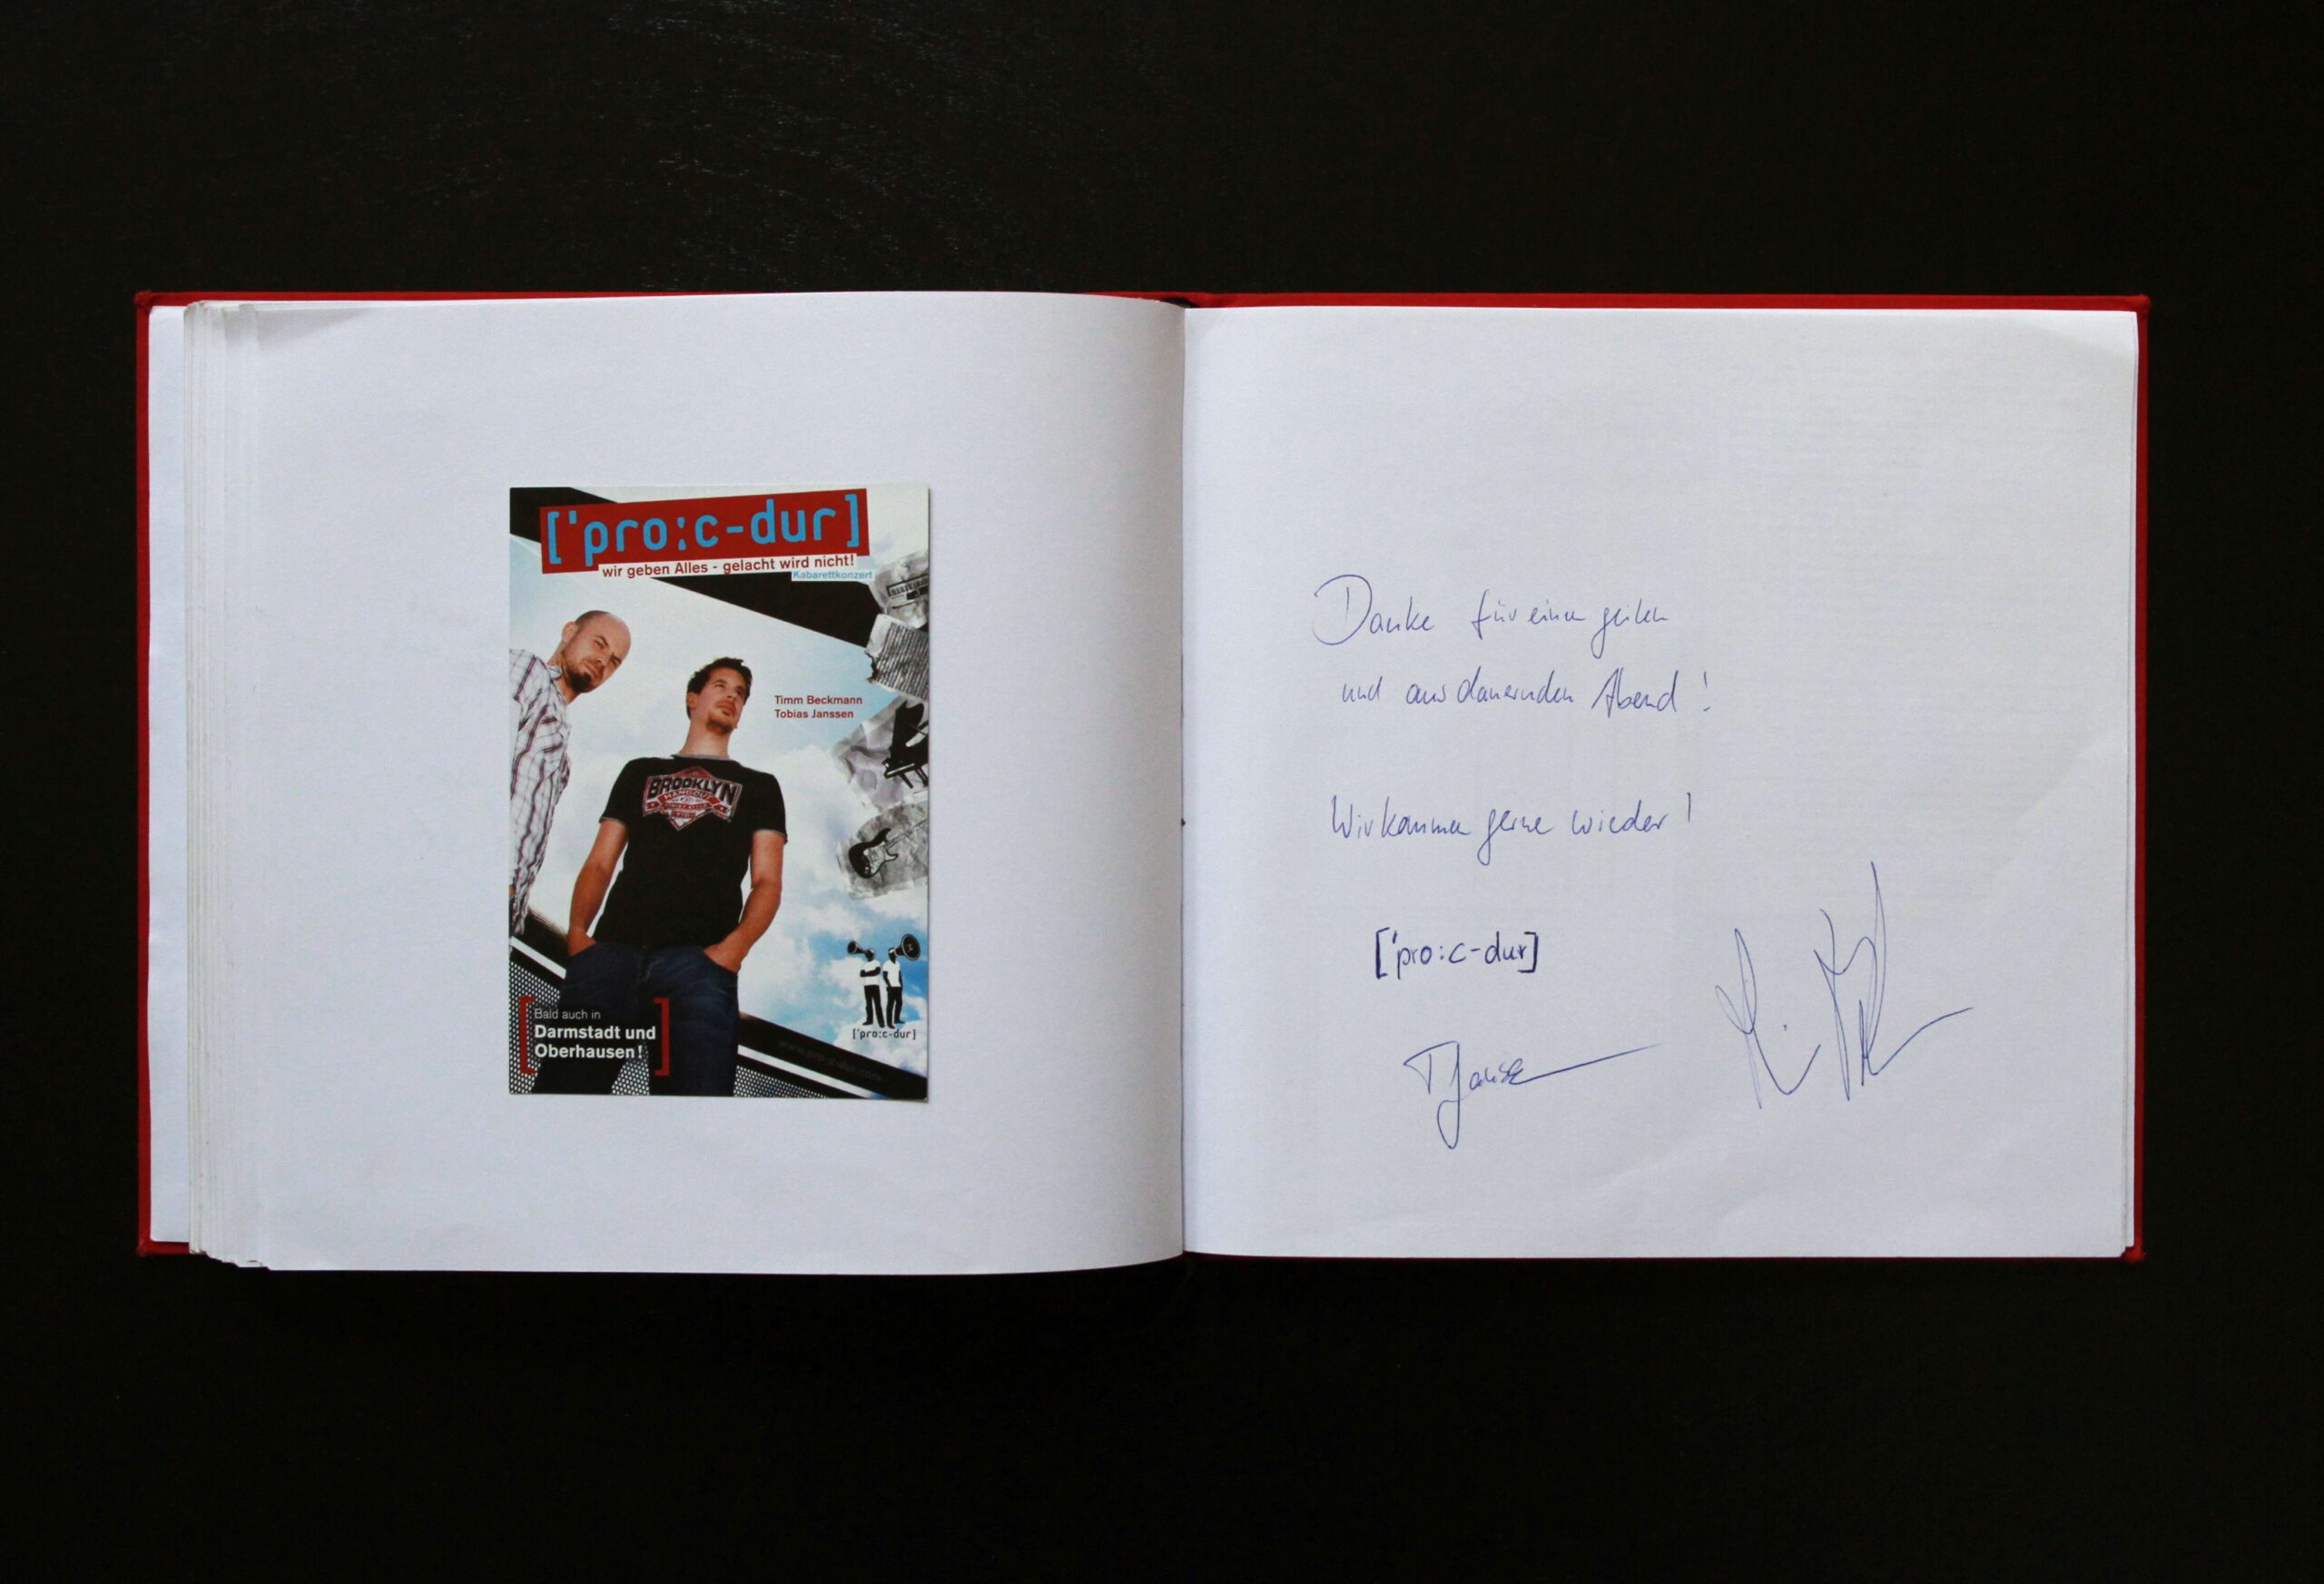 ['pro:c-dur]
wir geben Alles - gelacht wird nicht!
Kabarettkonzert
Timm Beckmann
Tobias Janssen
BROOKLYN
HANGOUT
['pro:c-dur]
Bald auch in
Darmstadt und
Oberhausen!
www.pro-c-dur.com
Danke für einen geilen
und ausdauernden Abend!
Wir kommen gerne wieder!
['pro:c-dur]